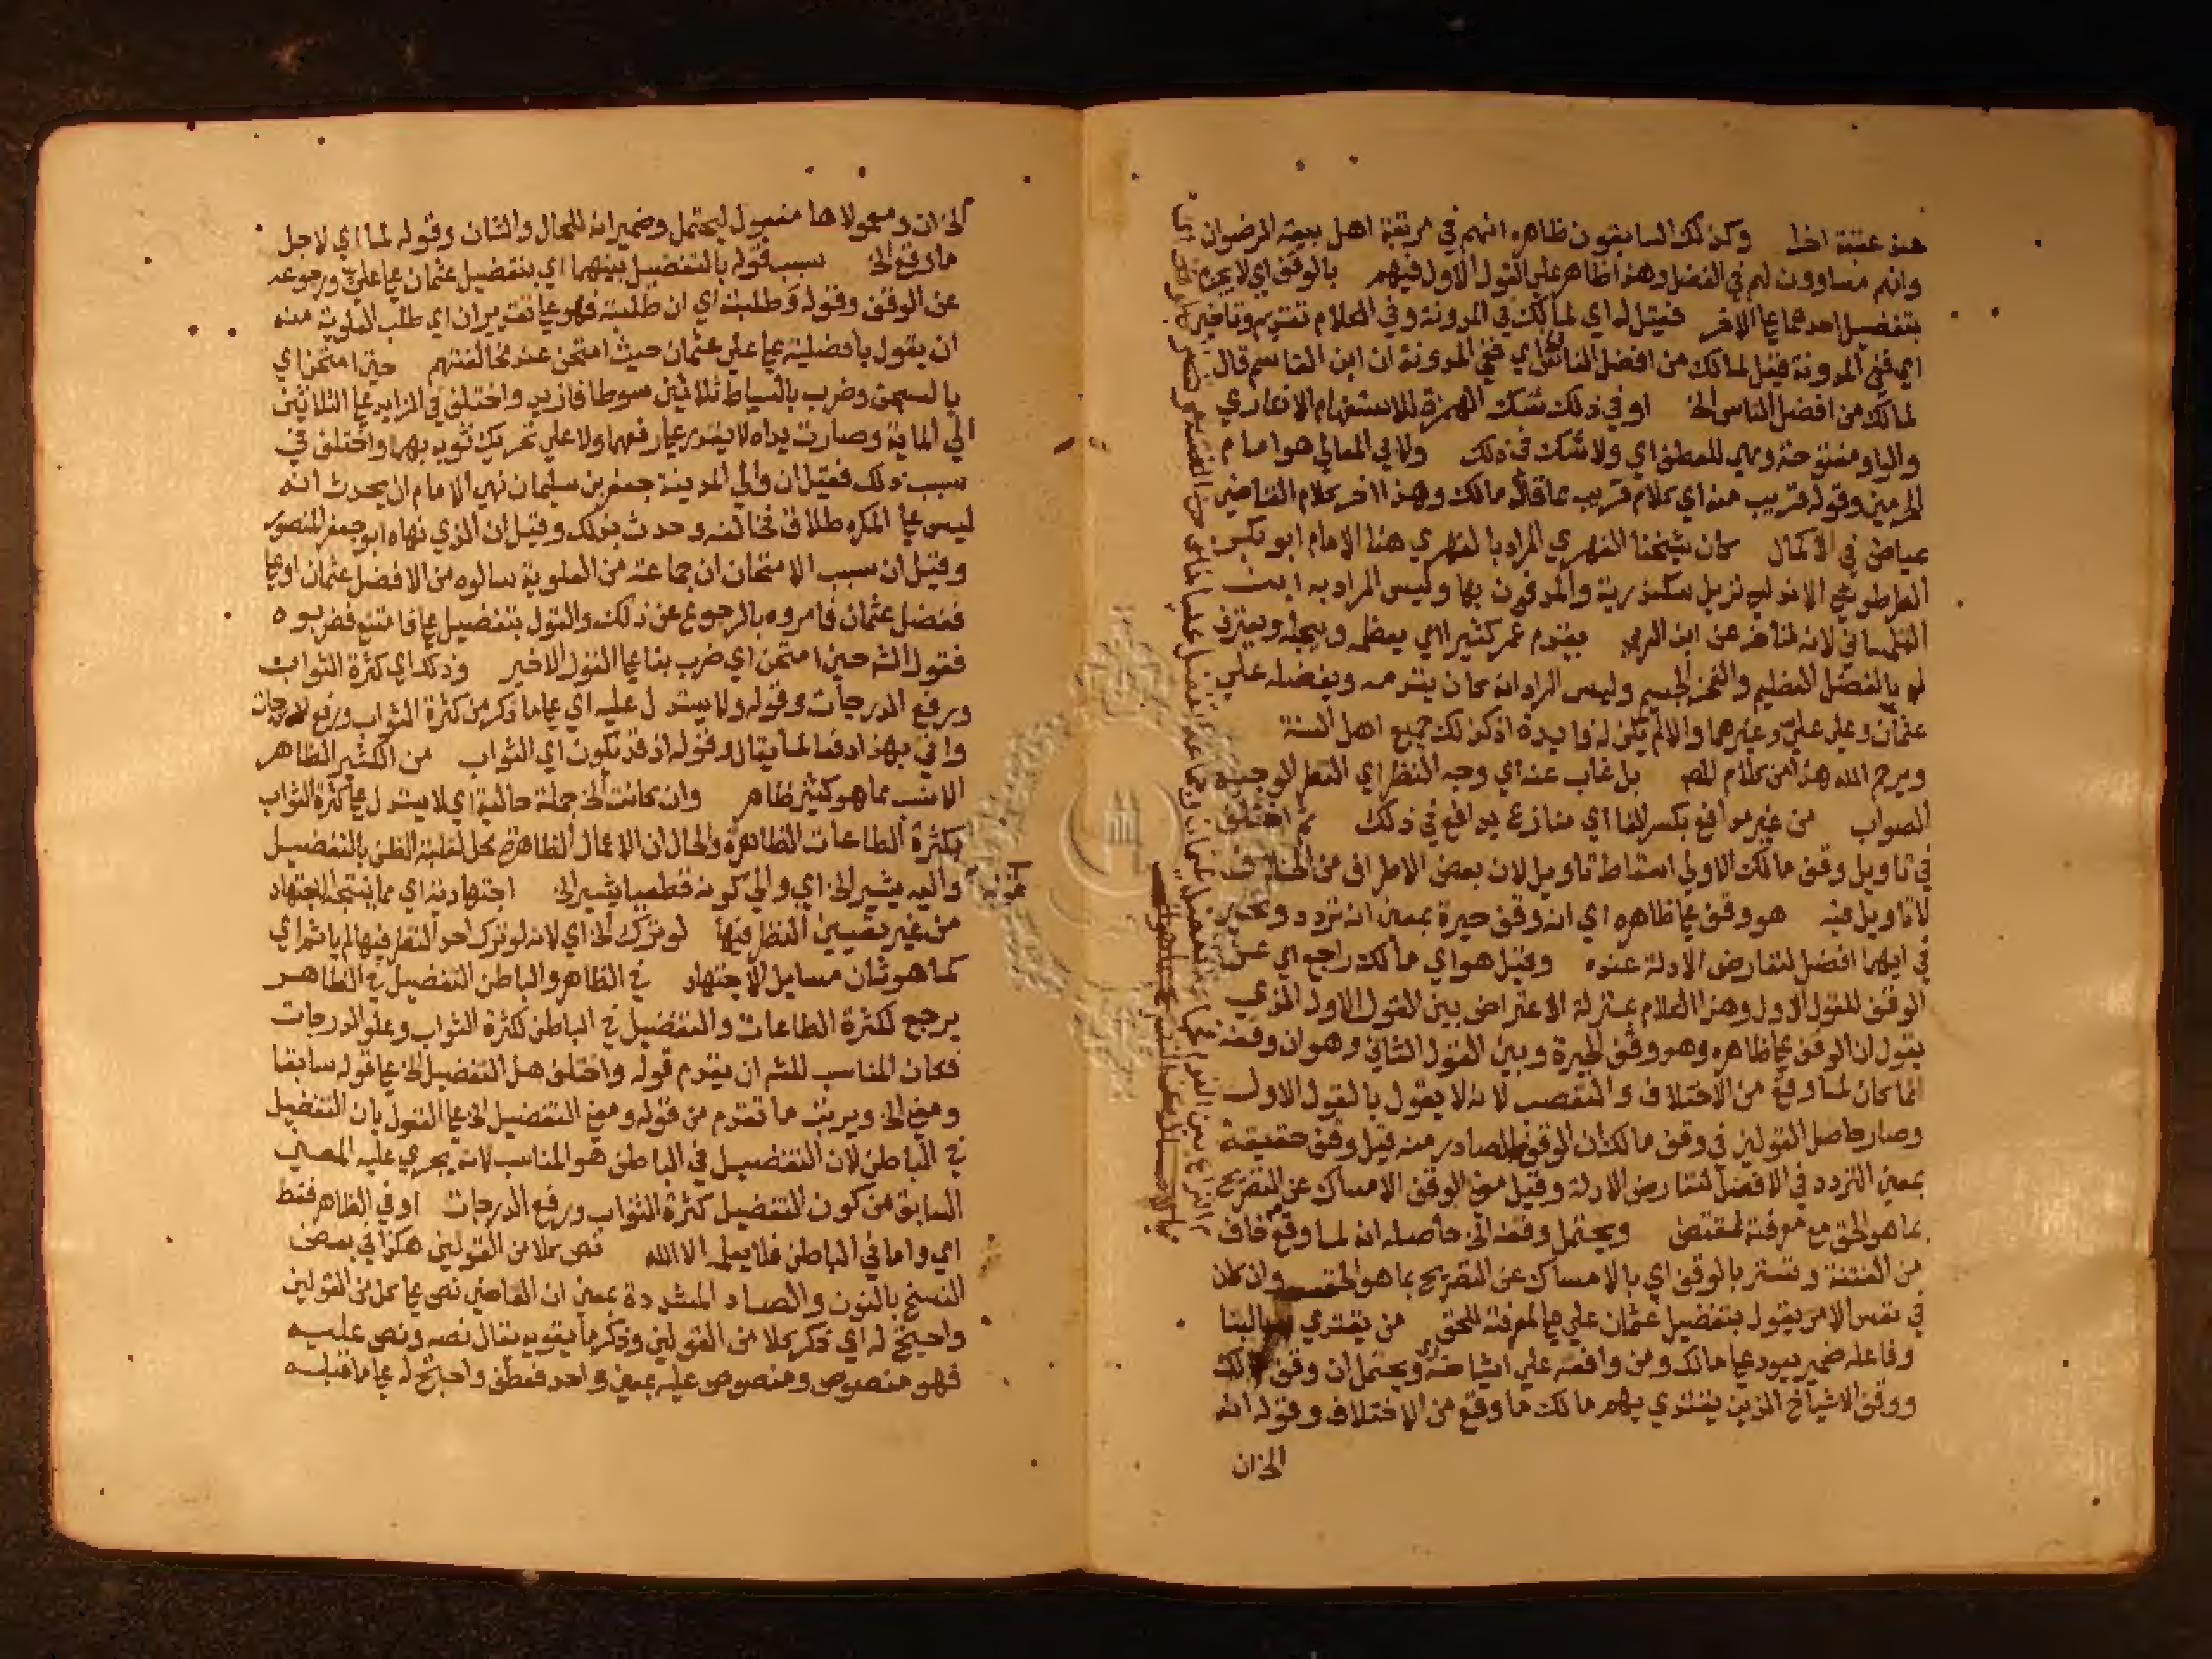 هنو عقبة اخذ وكذلك السابقون ظاهره انهم في مرتبة اهل بيعة الرضوان
وانهم مساوون لهم في الفضل وهذا ظاهر على القول الاول فيهم بالوقف اي لا يجزم
بتفضيل احدهما على الاخر فقيل له اي لمالك في المدونة وفي الكلام تقديم وتاخير
اي ففي المدونة قيل لمالك من افضل الناس اي ففي المدونة ان ابن القاسم قال
لمالك من افضل الناس الخ او في ذلك شك الهمزة للاستفهام الانكاري
والواو مفتوحة وهي للعطف اي ولا شك في ذلك ولابي المعالي هو امام
الحرمين وقوله قريب منه اي كلام قريب مما قال مالك وهذا اخر كلام القاضي
عياض في الاكمال كان شيخنا الفهري المراد بالفهري هنا الامام ابو بكر
الطرطوشي الاندلسي نزيل سكندرية والمدفون بها وليس المراد به ابن
التلمساني لانه متاخر عن ابن العربي يقدم عمر كثيرا اي يعظمه ويبجله ويعترف
له بالفضل العظيم والفخر الجسيم وليس المراد انه كان يقدمه ويفضله على
عثمان وعلى علي وغيرهما والا لم يكن له فايدة اذ كذلك جميع اهل السنة
ويرحم الله هذا من كلام المص بل غاب عنه اي وجه النظر اي النظر الوجيه
الصواب من غير مدافع بكسر الفا اي منازع يدافع في ذلك ثم اختلف
في تاويل وقف مالك الاولى اسقاط تاويل لان بعض الاطراف من الخلاف
لا تاويل فيه هو وقف على ظاهره اي انه وقف حيرة بمعنى انه تردد وتحير
في ايهما افضل لتعارض الادلة عنده وقيل هو اي مالك راجع اي عن
الوقف للقول الاول وهذا الكلام بمنزلة الاعتراض بين القول الاول الذي
يقول ان الوقف على ظاهره وهو وقف الحيرة وبين القول الثاني وهو ان وقفه
انما كان لما وقع من الاختلاف والتعصب لانه لا يقول بالقول الاول
وصار حاصل القولين في وقف مالك ان الوقف الصادر منه قيل وقف حقيقة
بمعنى التردد في الافضل لتعارض الادلة وقيل معنى الوقف الامساك عن التصريح
بما هو الحق مع معرفته لمقتض ويحتمل وقفه الخ حاصله انه لما وقع خاف
من الفتنة وتستر بالوقف اي بالامساك عن التصريح بما هو الحق وان كان
في نفس الامر يقول بتفضيل عثمان على علي لمعرفته للحق من يقتدي بالبنا
وفاعله ضمير يعود على مالك ومن واقعة على اشياخه ويحتمل ان وقف مالك
ووقف الاشياخ الذين يقتدي بهم مالك ما وقع من الاختلاف وقوله انه
الخ ان
الخ ان ومعمولاها مفعول ليحتمل وضمير انه للحال والشان وقوله لما اي لاجل
ما وقع الخ سبب قوله بالتفضيل بينهما اي بتفضيل عثمان على علي ورجوعه
عن الوقف وقوله وطلبته اي ان طلبته فهو على تقدير ان اي طلب العلوية منه
ان يقول بافضلية علي على عثمان حيث امتحن عند مخالفتهم حين امتحن اي
بالسجن وضرب بالسياط ثلاثين سوطا فازيد واختلف في الزايد على الثلاثين
الى الماية وصارت يداه لا يقدر على رفعهما ولا على تحريك ثوبه بهما واختلف في
سبب ذلك فقيل ان والي المدينة جعفر بن سليمان نهى الامام ان يحدث انه
ليس على المكره طلاق فخالفه وحدث بذلك وقيل ان الذي نهاه ابو جعفر المنصور
وقيل ان سبب الامتحان ان جماعة من العلوية سالوه من الافضل عثمان او علي
ففضل عثمان فامروه بالرجوع عن ذلك والقول بتفضيل علي فامتنع فضربوه
فقول الش حين امتحن اي ضرب بنا على القول الاخير وذلك اي كثرة الثواب
ورفع الدرجات وقوله ولا يستدل عليه اي على ما ذكر من كثرة الثواب ورفع الدرجات
واتى بهذا دفعا لما يقال وقوله اذ قد تكون اي الثواب من الكثير الظاهر
الانسب مما هو كثير ظاهر وان كانت الخ جملة حالية اي لا يستدل على كثرة الثواب
بكثرة الطاعات الظاهرة والحال ان الاعمال الظاهرة محل لغلبة الظن بالتفضيل
واليه يشير الخ اي والى كونه قطعيا يشير الخ اجتهادية اي مما ينتجه الاجتهاد
من غير تعيين النظر فيها لو ترك الخ اي لانه لو ترك احد النظر فيها لم ياثم اي
كما هو شان مسايل الاجتهاد في الظاهر والباطن التفضيل في الظاهر
يرجع لكثرة الطاعات والتفضيل في الباطن لكثرة الثواب وعلو الدرجات
فكان المناسب للش ان يقدم قوله واختلف هل التفضيل الخ على قوله سابقا
ومعنى الخ ويرتب ما تقدم من قوله ومعنى التفضيل الخ على القول بان التفضيل
في الباطن لان التفضيل في الباطن هو المناسب لانه يجري عليه المعنى
السابق من كون التفضيل كثرة الثواب ورفع الدرجات او في الظاهر فقط
اي واما في الباطن فلا يعلمه الا الله نص كلا من القولين هكذا في بعض
النسخ بالنون والصاد المشددة بمعنى ان القاضي نص على كل من القولين
واحتج له اي ذكر كلا من القولين وذكر ما يقويه يقال نصه ونص عليه
فهو منصوص ومنصوص عليه بمعنى واحد فعطف واحتج له على ما قبله